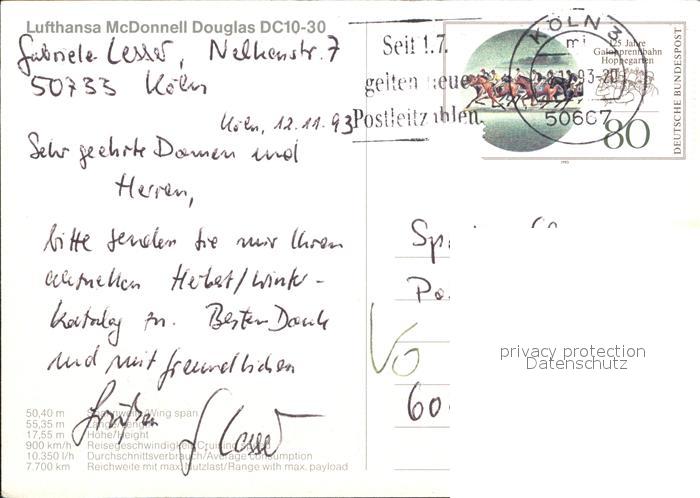 Lufthansa McDonnell Douglas DC10-30
Gabriele Lesser, Nelkenstr. 7
50733 Köln
Köln, 12.11.93
Sehr geehrte Damen und
Herren,
bitte senden Sie mir Ihren
aktuellen Herbst/Winter-
katalog zu. Besten Dank
und mit freundlichen
Grüßen
50,40 m Spannweite/Wing span
55,35 m Länge/Length
17,55 m Höhe/Height
900 km/h Reisegeschwindigkeit/Cruising
10.350 l/h Durchschnittsverbrauch/Average consumption
7.700 km Reichweite mit max. Nutzlast/Range with max. payload
Seit 1.7.
gelten neue
Postleitzahlen.
KÖLN 3
mi
93-20
50667
125 Jahre
Galopprennbahn
Hoppegarten
80
DEUTSCHE BUNDESPOST
1993
Sp
Po
Vo
60
privacy protection
Datenschutz